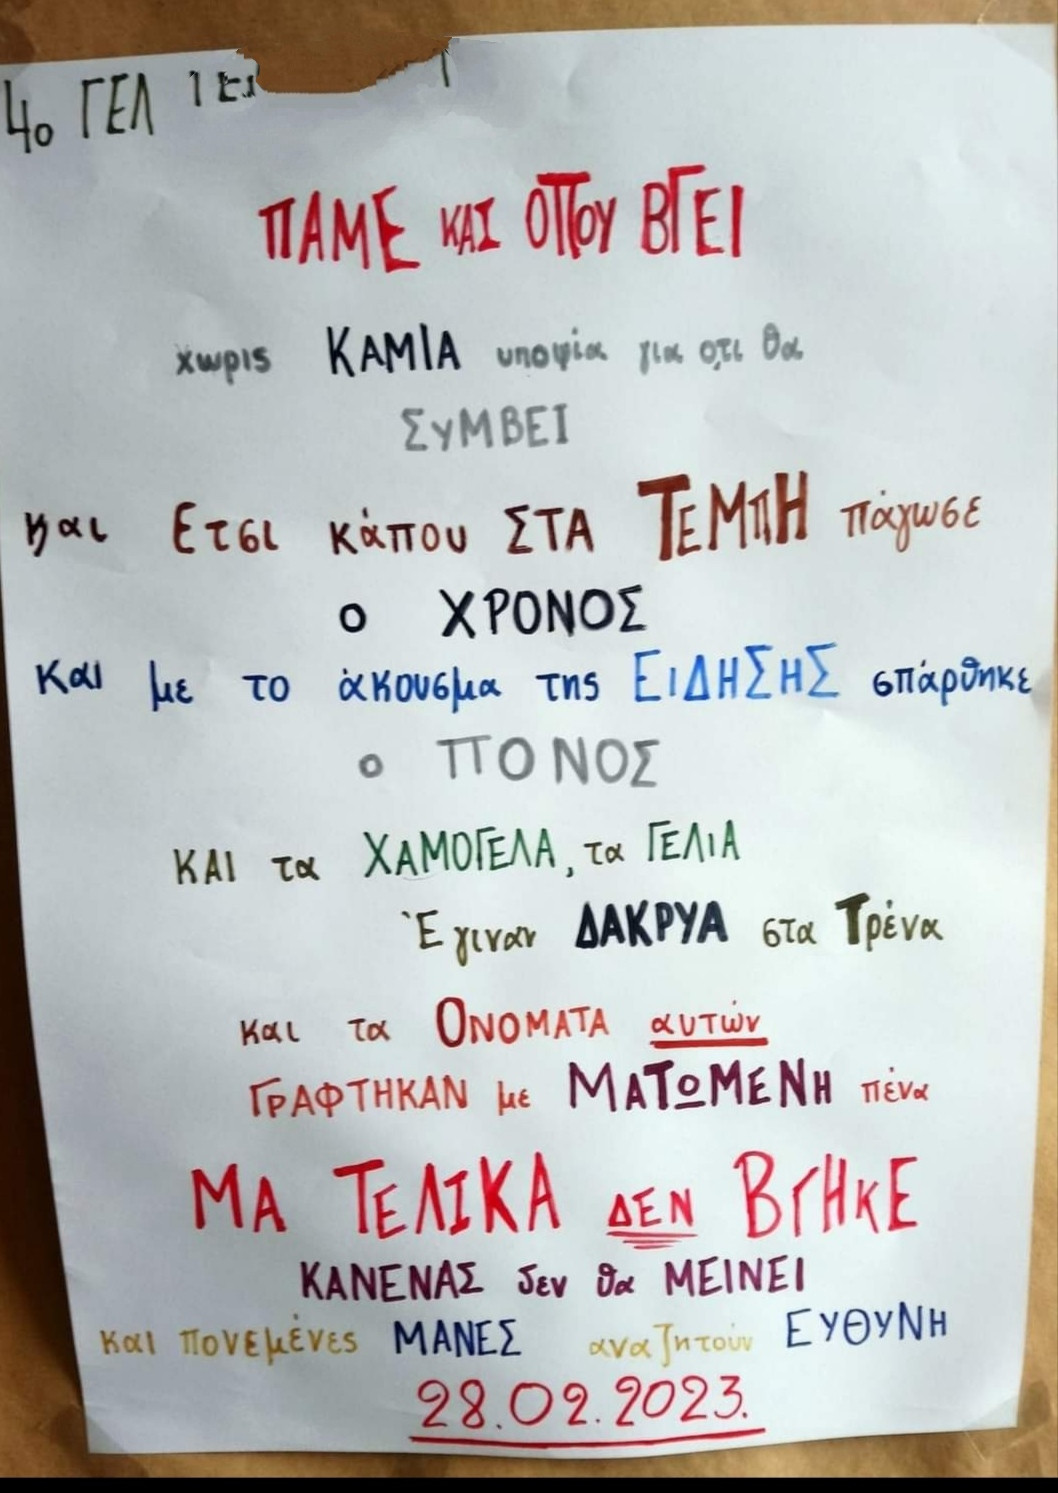 4ο ΓΕΛ
ΠΑΜΕ ΚΑΙ ΟΠΟΥ ΒΓΕΙ
χωρις ΚΑΜΙΑ υποψία για οτι θα
ΣΥΜΒΕΙ
και Ετσι κάπου ΣΤΑ ΤΕΜΠΗ πάγωσε
ο ΧΡΟΝΟΣ
και με το άκουσμα της ΕΙΔΗΣΗΣ σπάρθηκε
ο ΠΟΝΟΣ
ΚΑΙ τα ΧΑΜΟΓΕΛΑ, τα ΓΕΛΙΑ
Έγιναν ΔΑΚΡΥΑ στα Τρένα
και τα ΟΝΟΜΑΤΑ αυτών
ΓΡΑΦΤΗΚΑΝ με ΜΑΤΩΜΕΝΗ πένα
ΜΑ ΤΕΛΙΚΑ ΔΕΝ ΒΓΗΚΕ
ΚΑΝΕΝΑΣ δεν θα ΜΕΙΝΕΙ
και πονεμένες ΜΑΝΕΣ αναζητούν ΕΥΘΥΝΗ
28.02.2023.